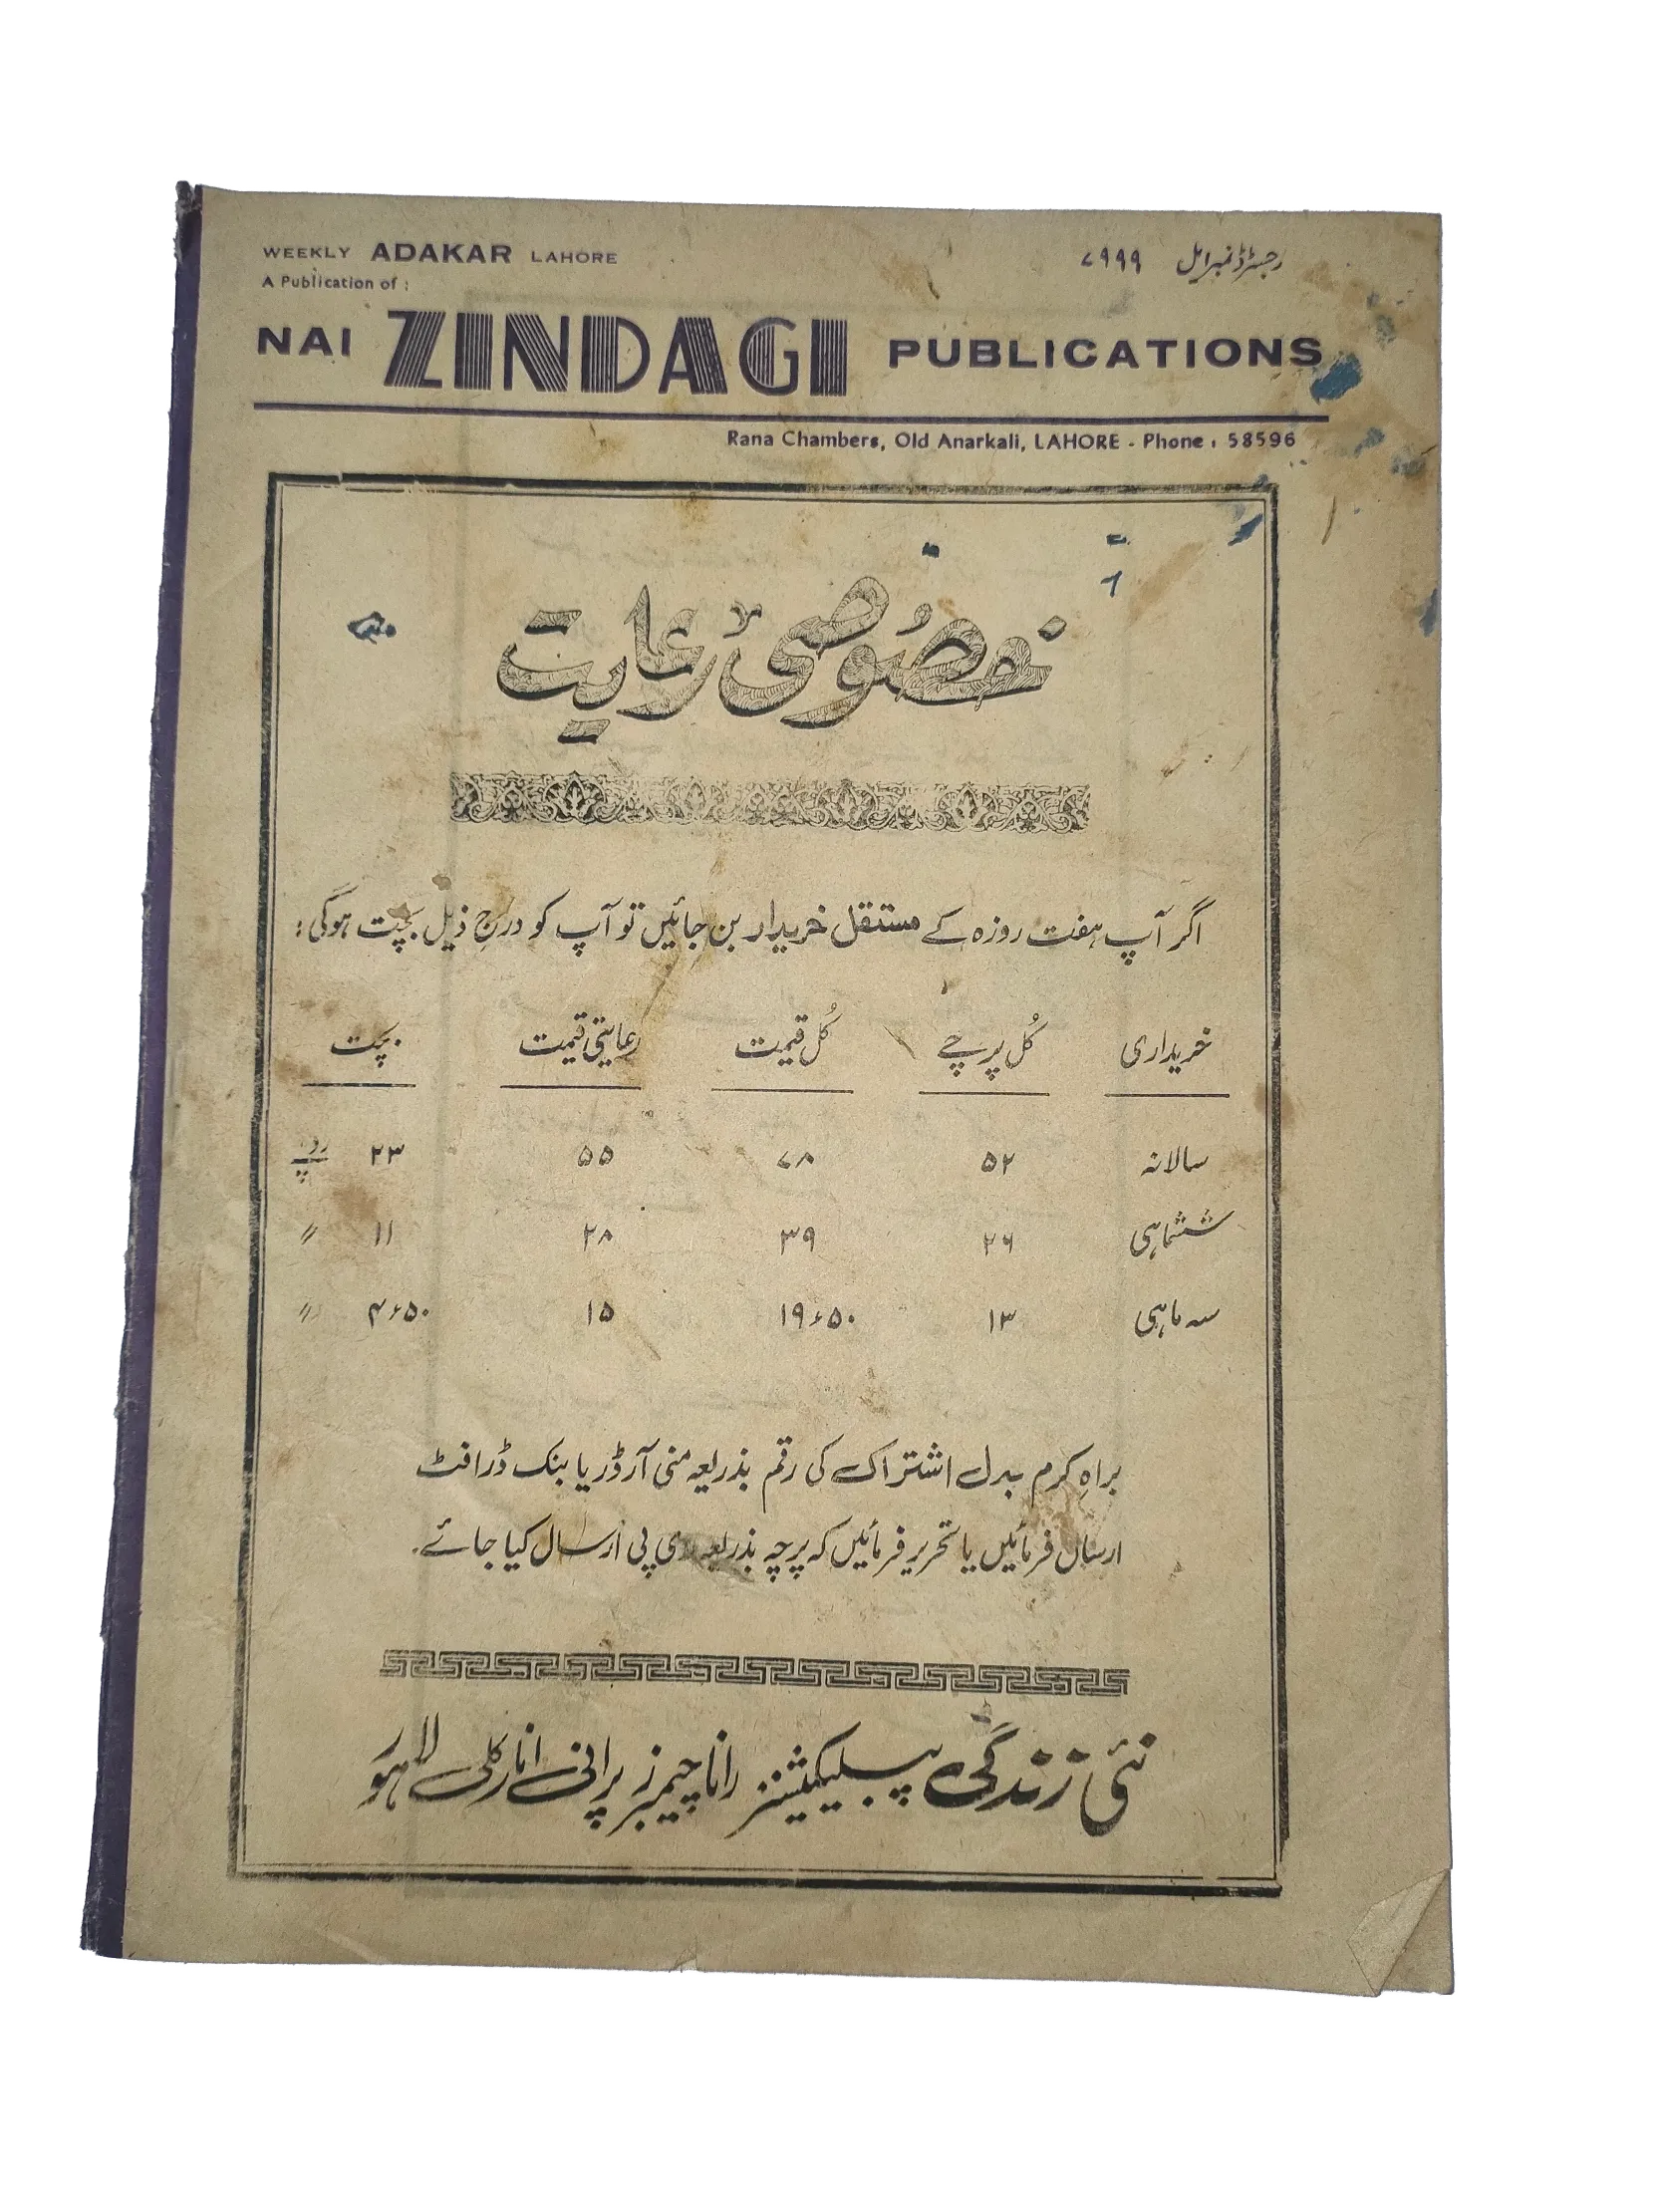 WEEKLY ADAKAR LAHORE
رجسٹرڈ نمبر ایل ۷۹۹۹
A Publication of :
NAI ZINDAGI PUBLICATIONS
Rana Chambers, Old Anarkali, LAHORE - Phone : 58596
خصوصی رعایت
اگر آپ ہفت روزہ کے مستقل خریدار بن جائیں تو آپ کو درج ذیل بچت ہوگی :
خریداری کُل پرچے کُل قیمت رعایتی قیمت بچت
سالانہ ۵۲ ۷۸ ۵۵ ۲۳ روپے
ششماہی ۲۶ ۳۹ ۲۸ ۱۱ ″
سہ ماہی ۱۳ ۱۹٫۵۰ ۱۵ ۴٫۵۰ ″
براہِ کرم بدل اشتراک کی رقم بذریعہ منی آرڈر یا بنک ڈرافٹ
ارسال فرمائیں یا تحریر فرمائیں کہ پرچہ بذریعہ وی پی ارسال کیا جائے۔
نئی زندگی پبلیکیشنز رانا چیمبرز پرانی انارکلی لاہور